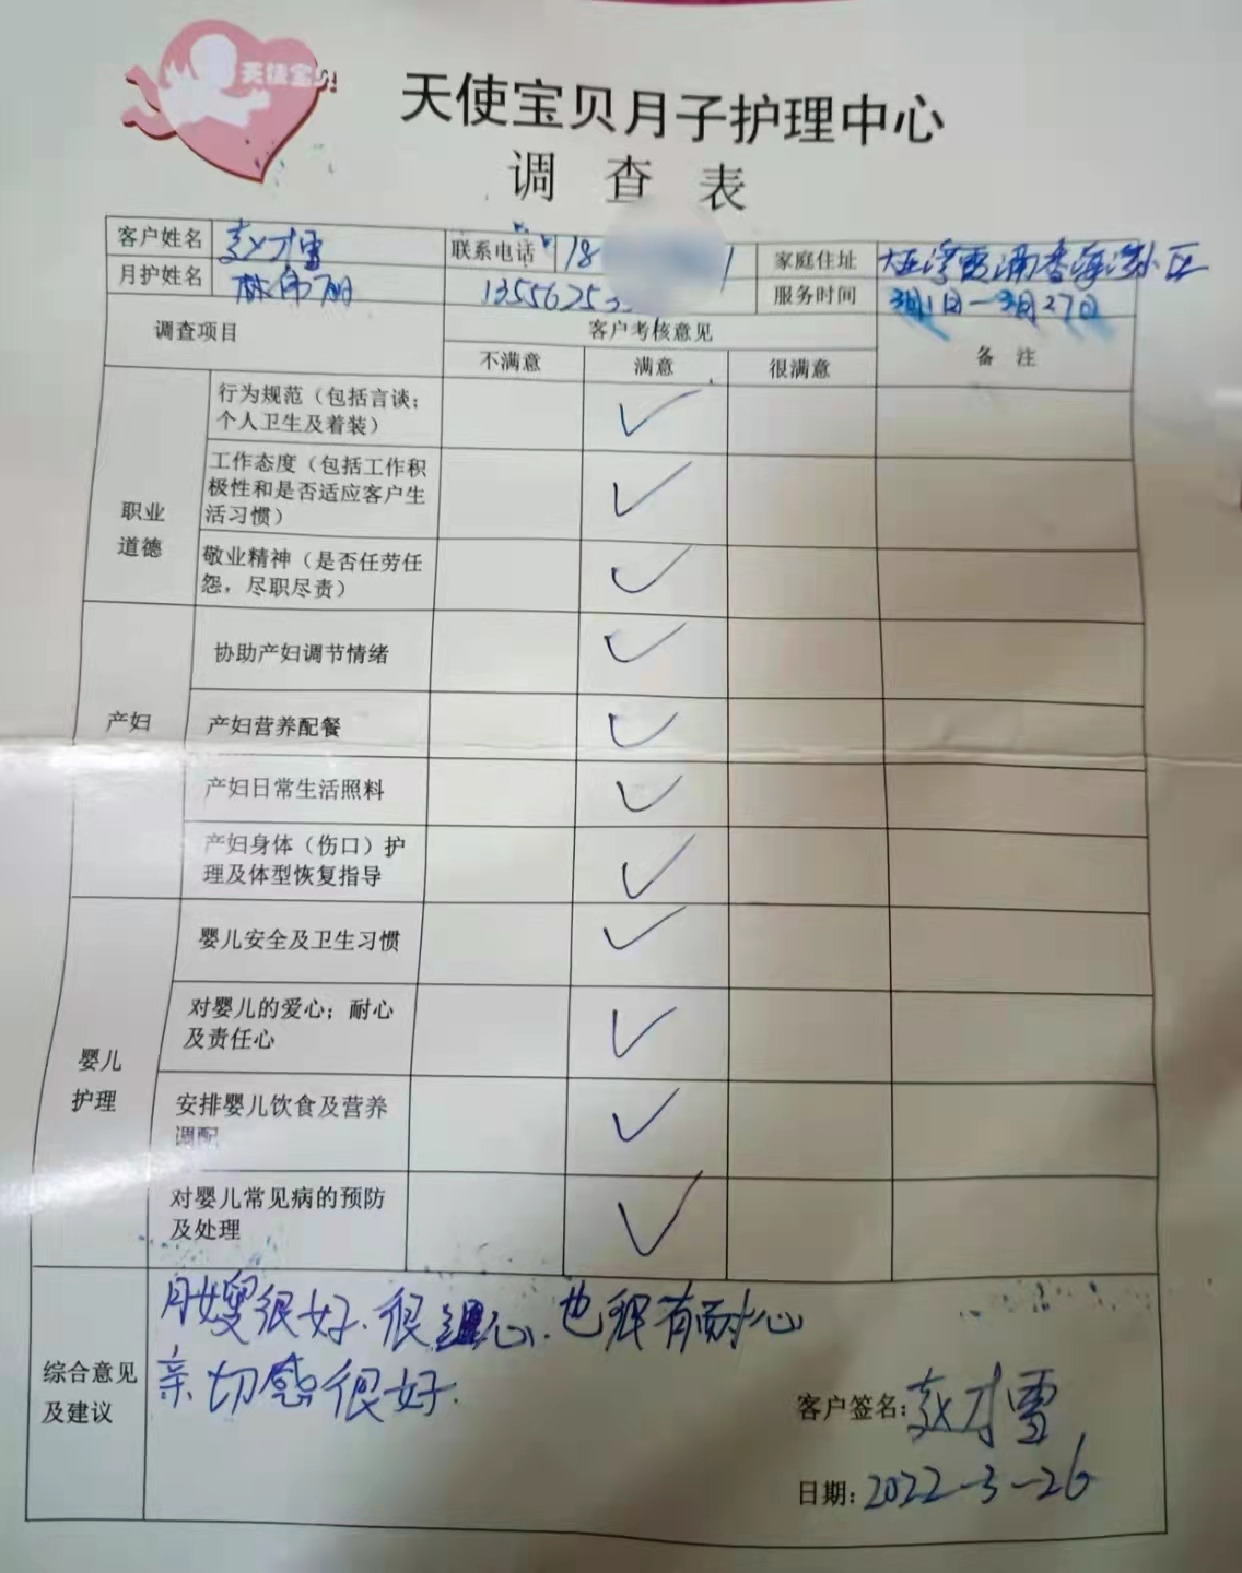 天使宝贝
天使宝贝月子护理中心
调 查 表
客户姓名 赵才雪 联系电话 18 1 家庭住址
月护姓名 1355625 服务时间 3月1日—3月27日
调查项目 客户考核意见 备 注
不满意 满意 很满意
职业
道德
行为规范（包括言谈；
个人卫生及着装） ✓
工作态度（包括工作积
极性和是否适应客户生
活习惯） ✓
敬业精神（是否任劳任
怨，尽职尽责） ✓
产妇
协助产妇调节情绪 ✓
产妇营养配餐 ✓
产妇日常生活照料 ✓
产妇身体（伤口）护
理及体型恢复指导 ✓
婴儿
护理
婴儿安全及卫生习惯 ✓
对婴儿的爱心；耐心
及责任心 ✓
安排婴儿饮食及营养
调配 ✓
对婴儿常见病的预防
及处理 ✓
综合意见
及建议
月嫂很好.很细心.也很有耐心
亲切感很好.
客户签名：赵才雪
日期：2022-3-26